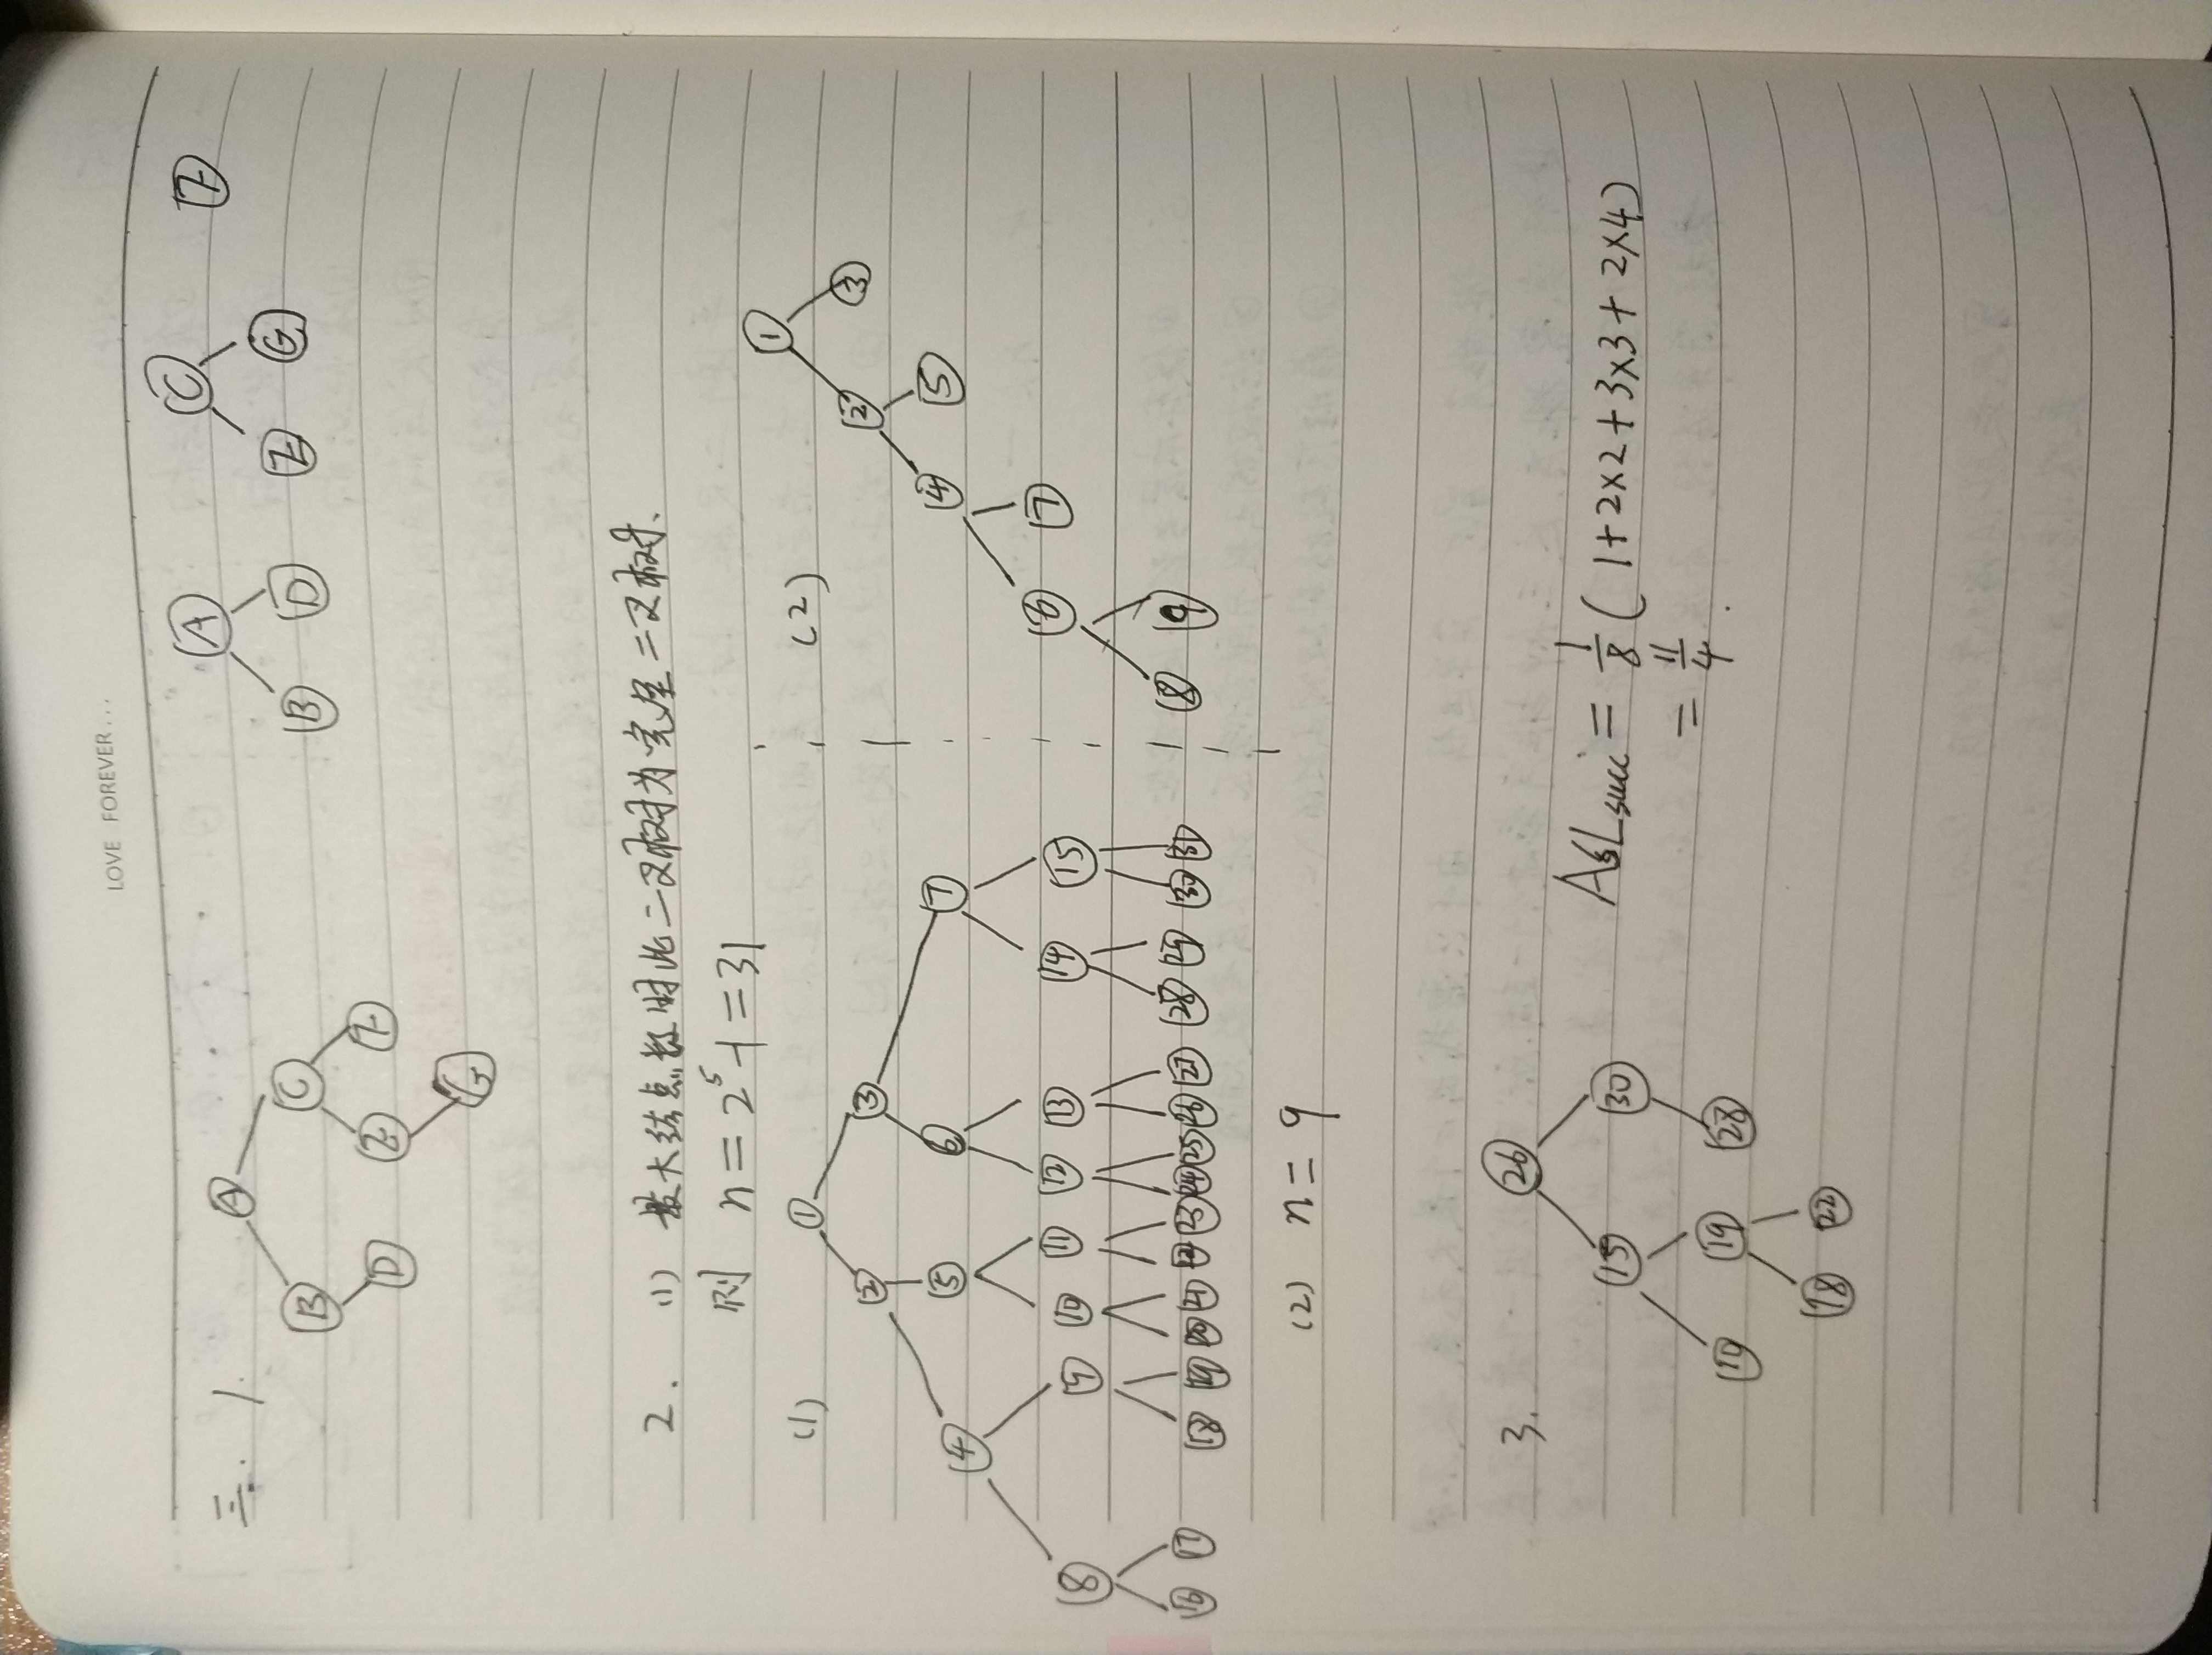 LOVE FOREVER...
三. 1.
A
B C
D E F
G
A C F
B D E G
2. (1) 最大结点数时此二叉树为完全二叉树.
则 n = 2⁵-1 = 31
(1)
1
2 3
4 5 6 7
8 9 10 11 12 13 14 15
16 17 18 19 20 21 22 23 24 25 26 27 28 29 30 31
(2)
1
2 3
4 5
6 7
8 9
(2) n = 9
3.
26
15 30
10 19 28
18 22
ASLsucc = 1/8 ( 1+2×2+3×3+2×4)
= 11/4.